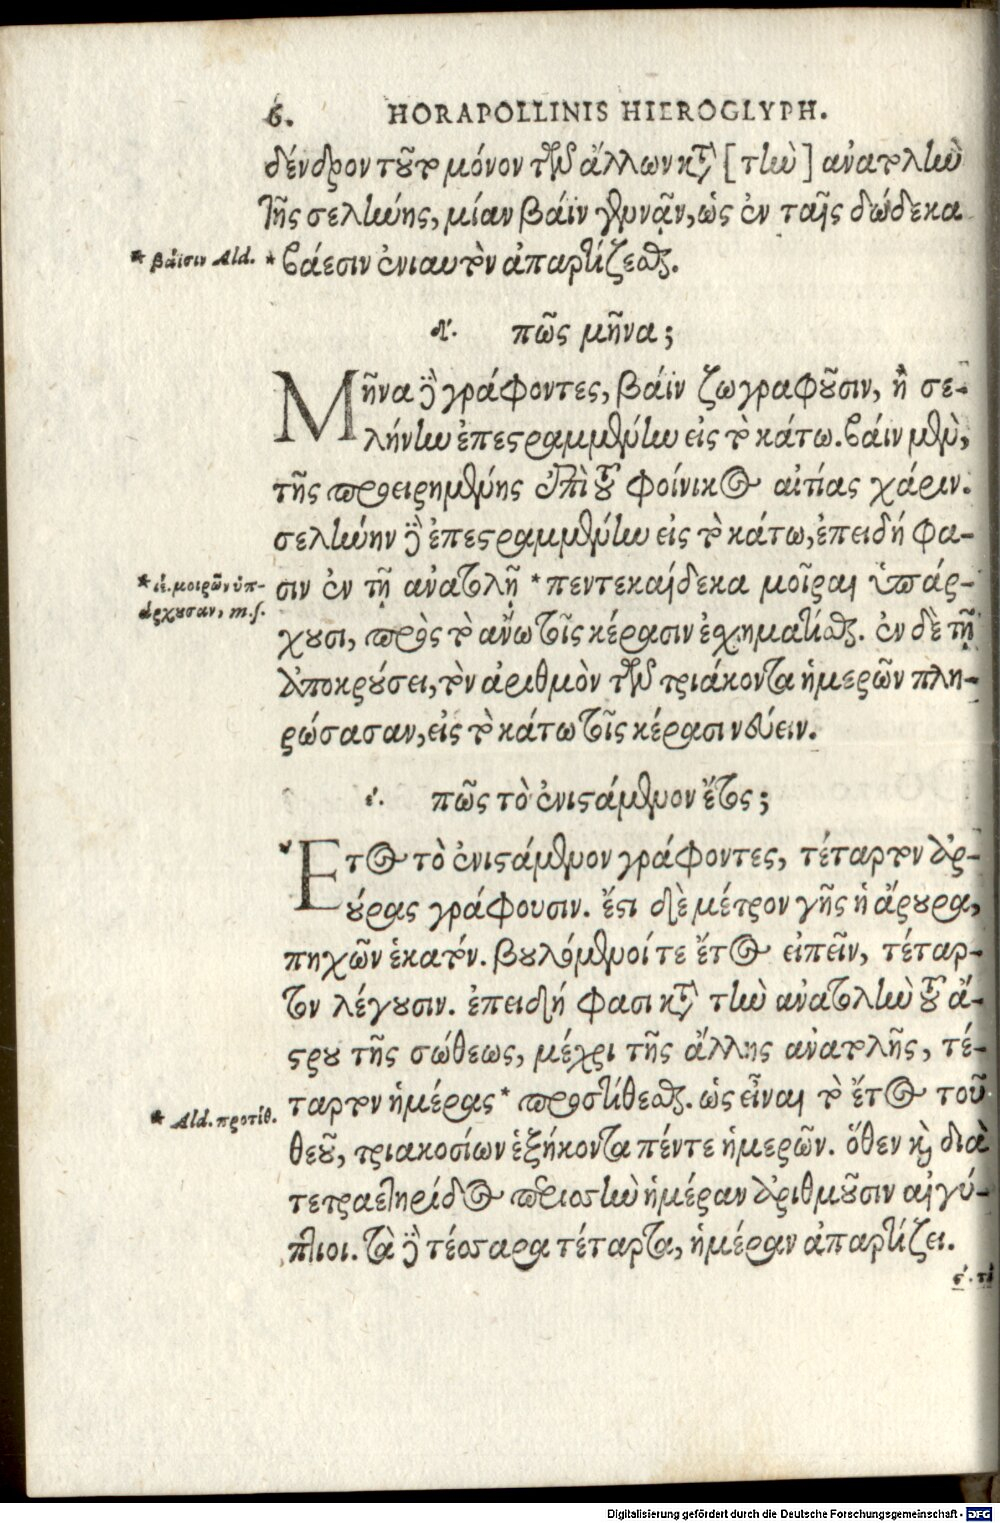 6. HORAPOLLINIS HIEROGLYPH.
δένδρον τοῦτο μόνον τῶν ἄλλων κατὰ [τὴν] ἀνατολὴν
τῆς σελήνης, μίαν βάϊν γεννᾶν, ὡς ἐν ταῖς δώδεκα
* βάισιν Ald. * βάεσιν ἐνιαυτὸν ἀπαρτίζεσθαι.
δʹ. πῶς μῆνα;
Μῆνα δὲ γράφοντες, βάϊν ζωγραφοῦσιν, ἢ σε-
λήνην ἐπεστραμμένην εἰς τὸ κάτω. βάιν μὲν,
τῆς προειρημένης ἐπὶ τοῦ φοίνικος αἰτίας χάριν.
σελήνην δὲ ἐπεστραμμένην εἰς τὸ κάτω, ἐπειδή φα-
σιν ἐν τῇ ἀνατολῇ * πεντεκαίδεκα μοῖραι ὑπάρ-
* ιέ. μοιρῶν ὑπ-
άρχουσαν, m.s.
χουσι, πρὸς τὸ ἄνω τοῖς κέρασιν ἐσχηματίσθαι. ἐν δὲ τῇ
ἀποκρούσει, τὸν ἀριθμὸν τῶν τριάκοντα ἡμερῶν πλη-
ρώσασαν, εἰς τὸ κάτω τοῖς κέρασι νεύειν.
εʹ. πῶς τὸ ἐνιστάμενον ἔτος;
Ἔτος τὸ ἐνιστάμενον γράφοντες, τέταρτον ἀρ-
ούρας γράφουσιν. ἔστι δὲ μέτρον γῆς ἡ ἄρουρα,
πηχῶν ἑκατόν. βουλόμενοί τε ἔτος εἰπεῖν, τέταρ-
τον λέγουσιν. ἐπειδή φασι κατὰ τὴν ἀνατολὴν τοῦ ἄ-
στρου τῆς σώθεως, μέχρι τῆς ἄλλης ἀνατολῆς, τέ-
ταρτον ἡμέρας * προστίθεσθαι. ὡς εἶναι τὸ ἔτος τοῦ
* Ald. προτίθ.
θεοῦ, τριακοσίων ἑξήκοντα πέντε ἡμερῶν. ὅθεν καὶ διὰ
τετραετηρίδος περισσὴν ἡμέραν ἀριθμοῦσιν αἰγύ-
πτιοι. τὰ δὲ τέσσαρα τέταρτα, ἡμέραν ἀπαρτίζει.
ϛʹ. τί
Digitalisierung gefördert durch die Deutsche Forschungsgemeinschaft - DFG